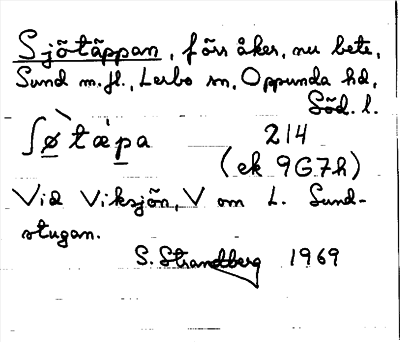 Sjötäppan, förr åker, nu bete,
Sund m.fl., Lerbo sn, Oppunda hd,
Söd. l.
ʃø̀tæ̀pa 214
(ek 9G7h)
Vid Viksjön, V om L. Sund-
stugan.
S. Strandberg 1969